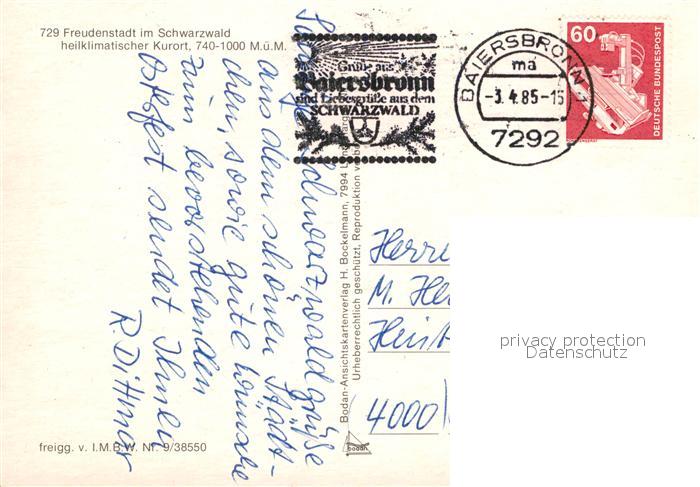 729 Freudenstadt im Schwarzwald
heilklimatischer Kurort, 740-1000 M.ü.M.
Schwarzwaldgrüße
aus dem schönen Städt-
chen, sowie gute Wünsche
zum bevorstehenden
Osterfest sendet Ihnen
R. Dittmer
freigg. v. I.M.B.W. Nr. 9/38550
Bodan-Ansichtskartenverlag H. Bockelmann, 7994
Urheberrechtlich geschützt, Reproduktion
bodan
Grüße aus
Baiersbronn
und Liebesgrüße aus dem
SCHWARZWALD
BAIERSBRONN 1
ma
-3.4.85-15
7292
60
DEUTSCHE BUNDESPOST
Herrn
M.
(4000)
privacy protection
Datenschutz